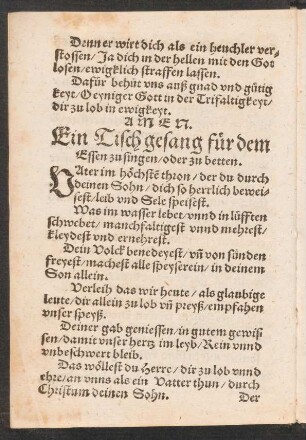 Denner wirt dich als ein heuchler ver-
stossen / Ja dich in der hellen mit den Got
losen / ewigklich straffen lassen.
Dafür behüt vns auß gnad vnd gütig
keyt / O eyniger Gott in der Trifaltigkeyt /
dir zu lob in ewigkeyt.
AMEN.
Ein Tisch gesang für dem
Essen zu singen / oder zu betten.
VAter im höchstē thron / der du durch
deinen Sohn / dich so herrlich bewei-
sest / leib vnd Sele speisest.
Was im wasser lebet / vnnd in lüfften
schwebet / manchfaltigest vnnd mehrest /
kleydest vnd ernehrest.
Dein Volck benedeyest / vñ von sünden
freyest / machest alle speyserein / in deinem
Son allein.
Verleih das wir heute / als glaubige
leute / dir allein zu lob vñ preyß / empfahen
vnser speyß.
Deiner gab geniessen / in gutem gewiß
sen / damit vnser hertz im leyb / Rein vnnd
vnbeschwert bleib.
Das wöllest du Herre / dir zu lob vnnd
ehre / an vnns als ein Vatter thun / durch
Christum deinen Sohn.
Der